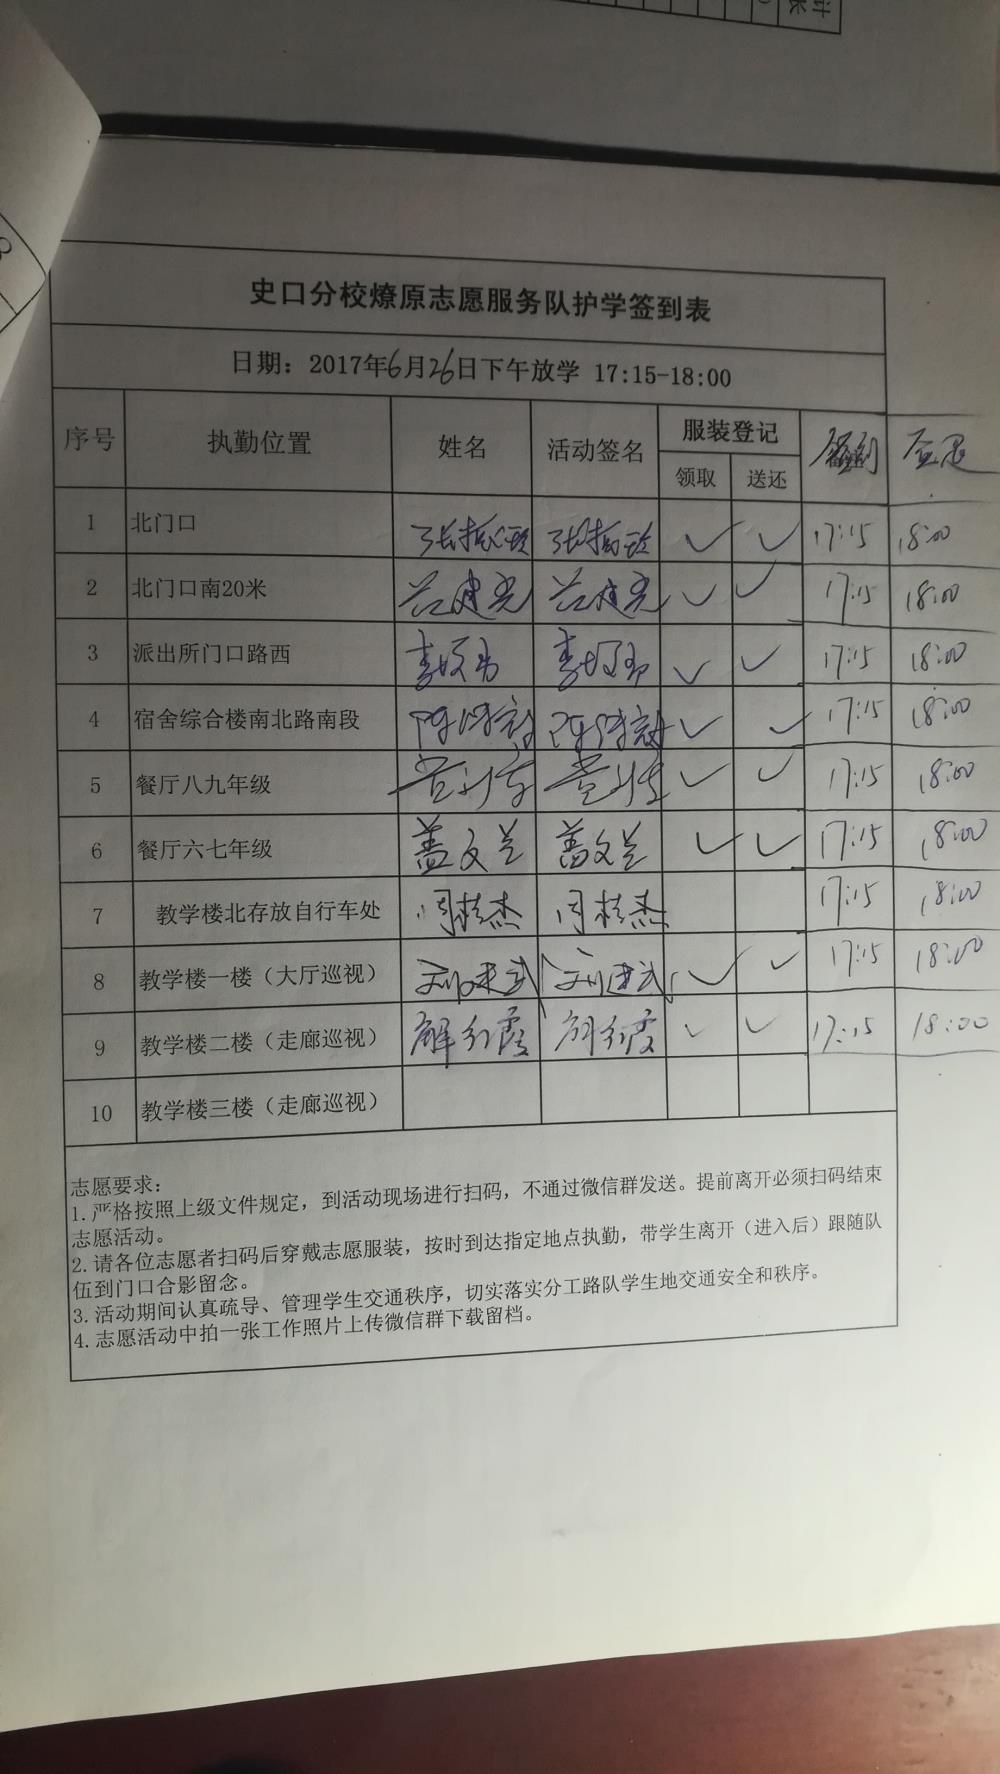 史口分校燎原志愿服务队护学签到表
日期：2017年6月26日下午放学 17:15-18:00
序号 执勤位置 姓名 活动签名 服装登记 签到 签退
领取 送还
1 北门口 ✓ ✓ 17:15 18:00
2 北门口南20米 ✓ ✓ 17:15 18:00
3 派出所门口路西 ✓ ✓ 17:15 18:00
4 宿舍综合楼南北路南段 ✓ ✓ 17:15 18:00
5 餐厅八九年级 ✓ ✓ 17:15 18:00
6 餐厅六七年级 盖文兰 盖文兰 ✓ ✓ 17:15 18:00
7 教学楼北存放自行车处 闫桂杰 闫桂杰 17:15 18:00
8 教学楼一楼（大厅巡视） 刘建武 刘建武 ✓ ✓ 17:15 18:00
9 教学楼二楼（走廊巡视） 解红霞 解红霞 ✓ ✓ 17:15 18:00
10 教学楼三楼（走廊巡视）
志愿要求：
1.严格按照上级文件规定，到活动现场进行扫码，不通过微信群发送。提前离开必须扫码结束
志愿活动。
2.请各位志愿者扫码后穿戴志愿服装，按时到达指定地点执勤，带学生离开（进入后）跟随队
伍到门口合影留念。
3.活动期间认真疏导、管理学生交通秩序，切实落实分工路队学生地交通安全和秩序。
4.志愿活动中拍一张工作照片上传微信群下载留档。